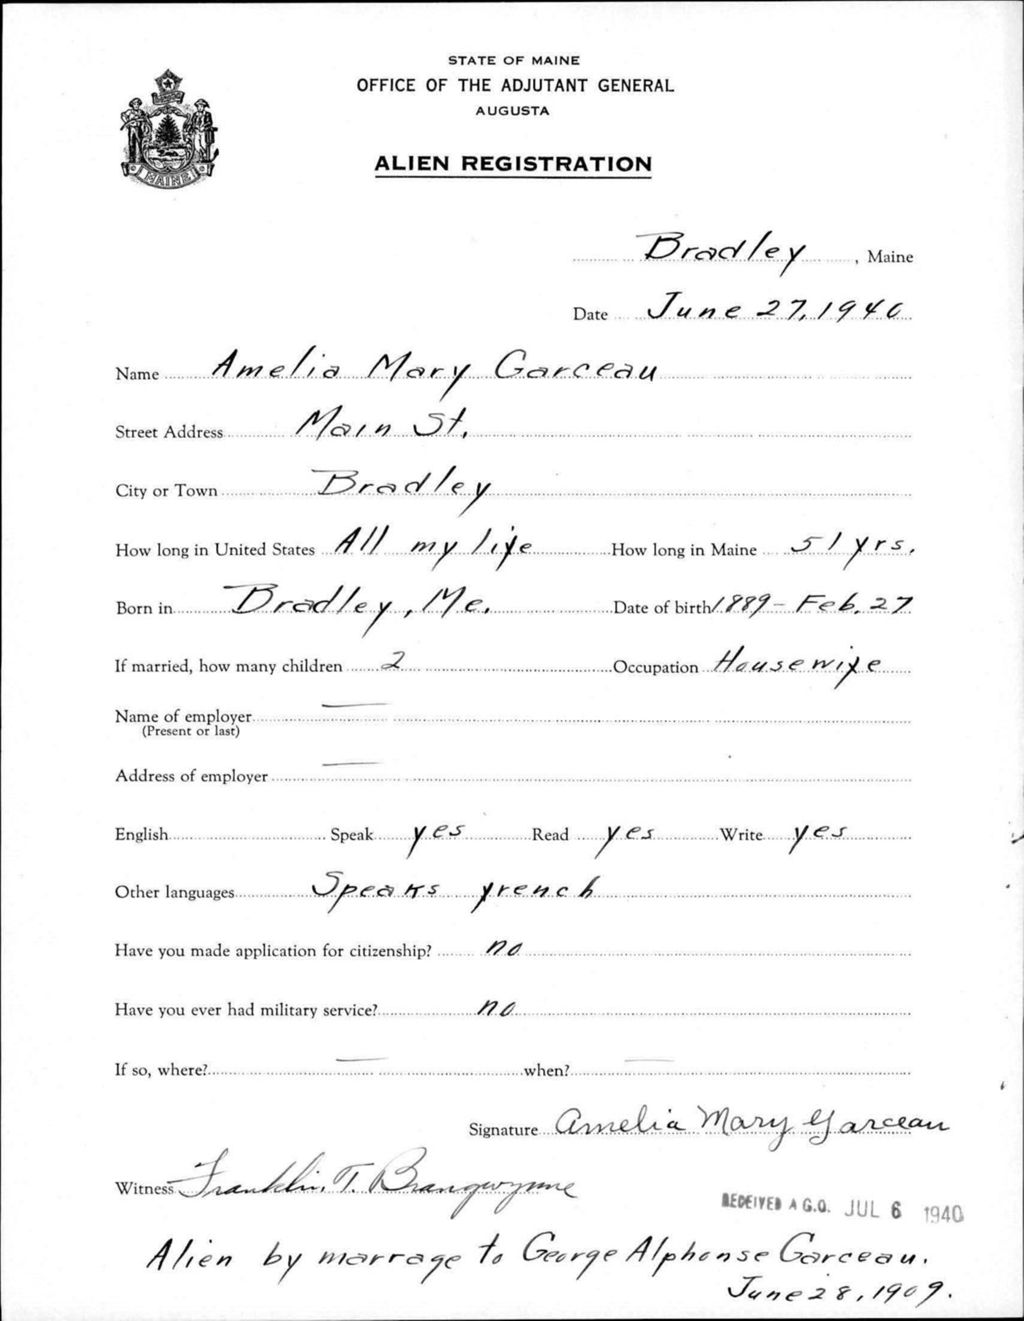 STATE OF MAINE
OFFICE OF THE ADJUTANT GENERAL
AUGUSTA
ALIEN REGISTRATION
MAINE
Bradley, Maine
Date June 27, 1940
Name Amelia Mary Garceau
Street Address Main St.
City or Town Bradley
How long in United States All my life How long in Maine 51 yrs.
Born in Bradley, Me. Date of birth 1889 - Feb. 27
If married, how many children 2 Occupation Housewife
Name of employer
(Present or last)
Address of employer
English Speak yes Read yes Write yes
Other languages Speaks french
Have you made application for citizenship? no
Have you ever had military service? no
If so, where? when?
Signature Amelia Mary Garceau
Witness Franklin T. Brangwynne
RECEIVED A.G.O. JUL 6 1940
Alien by marrage to George Alphonse Garceau.
June 28, 1909.